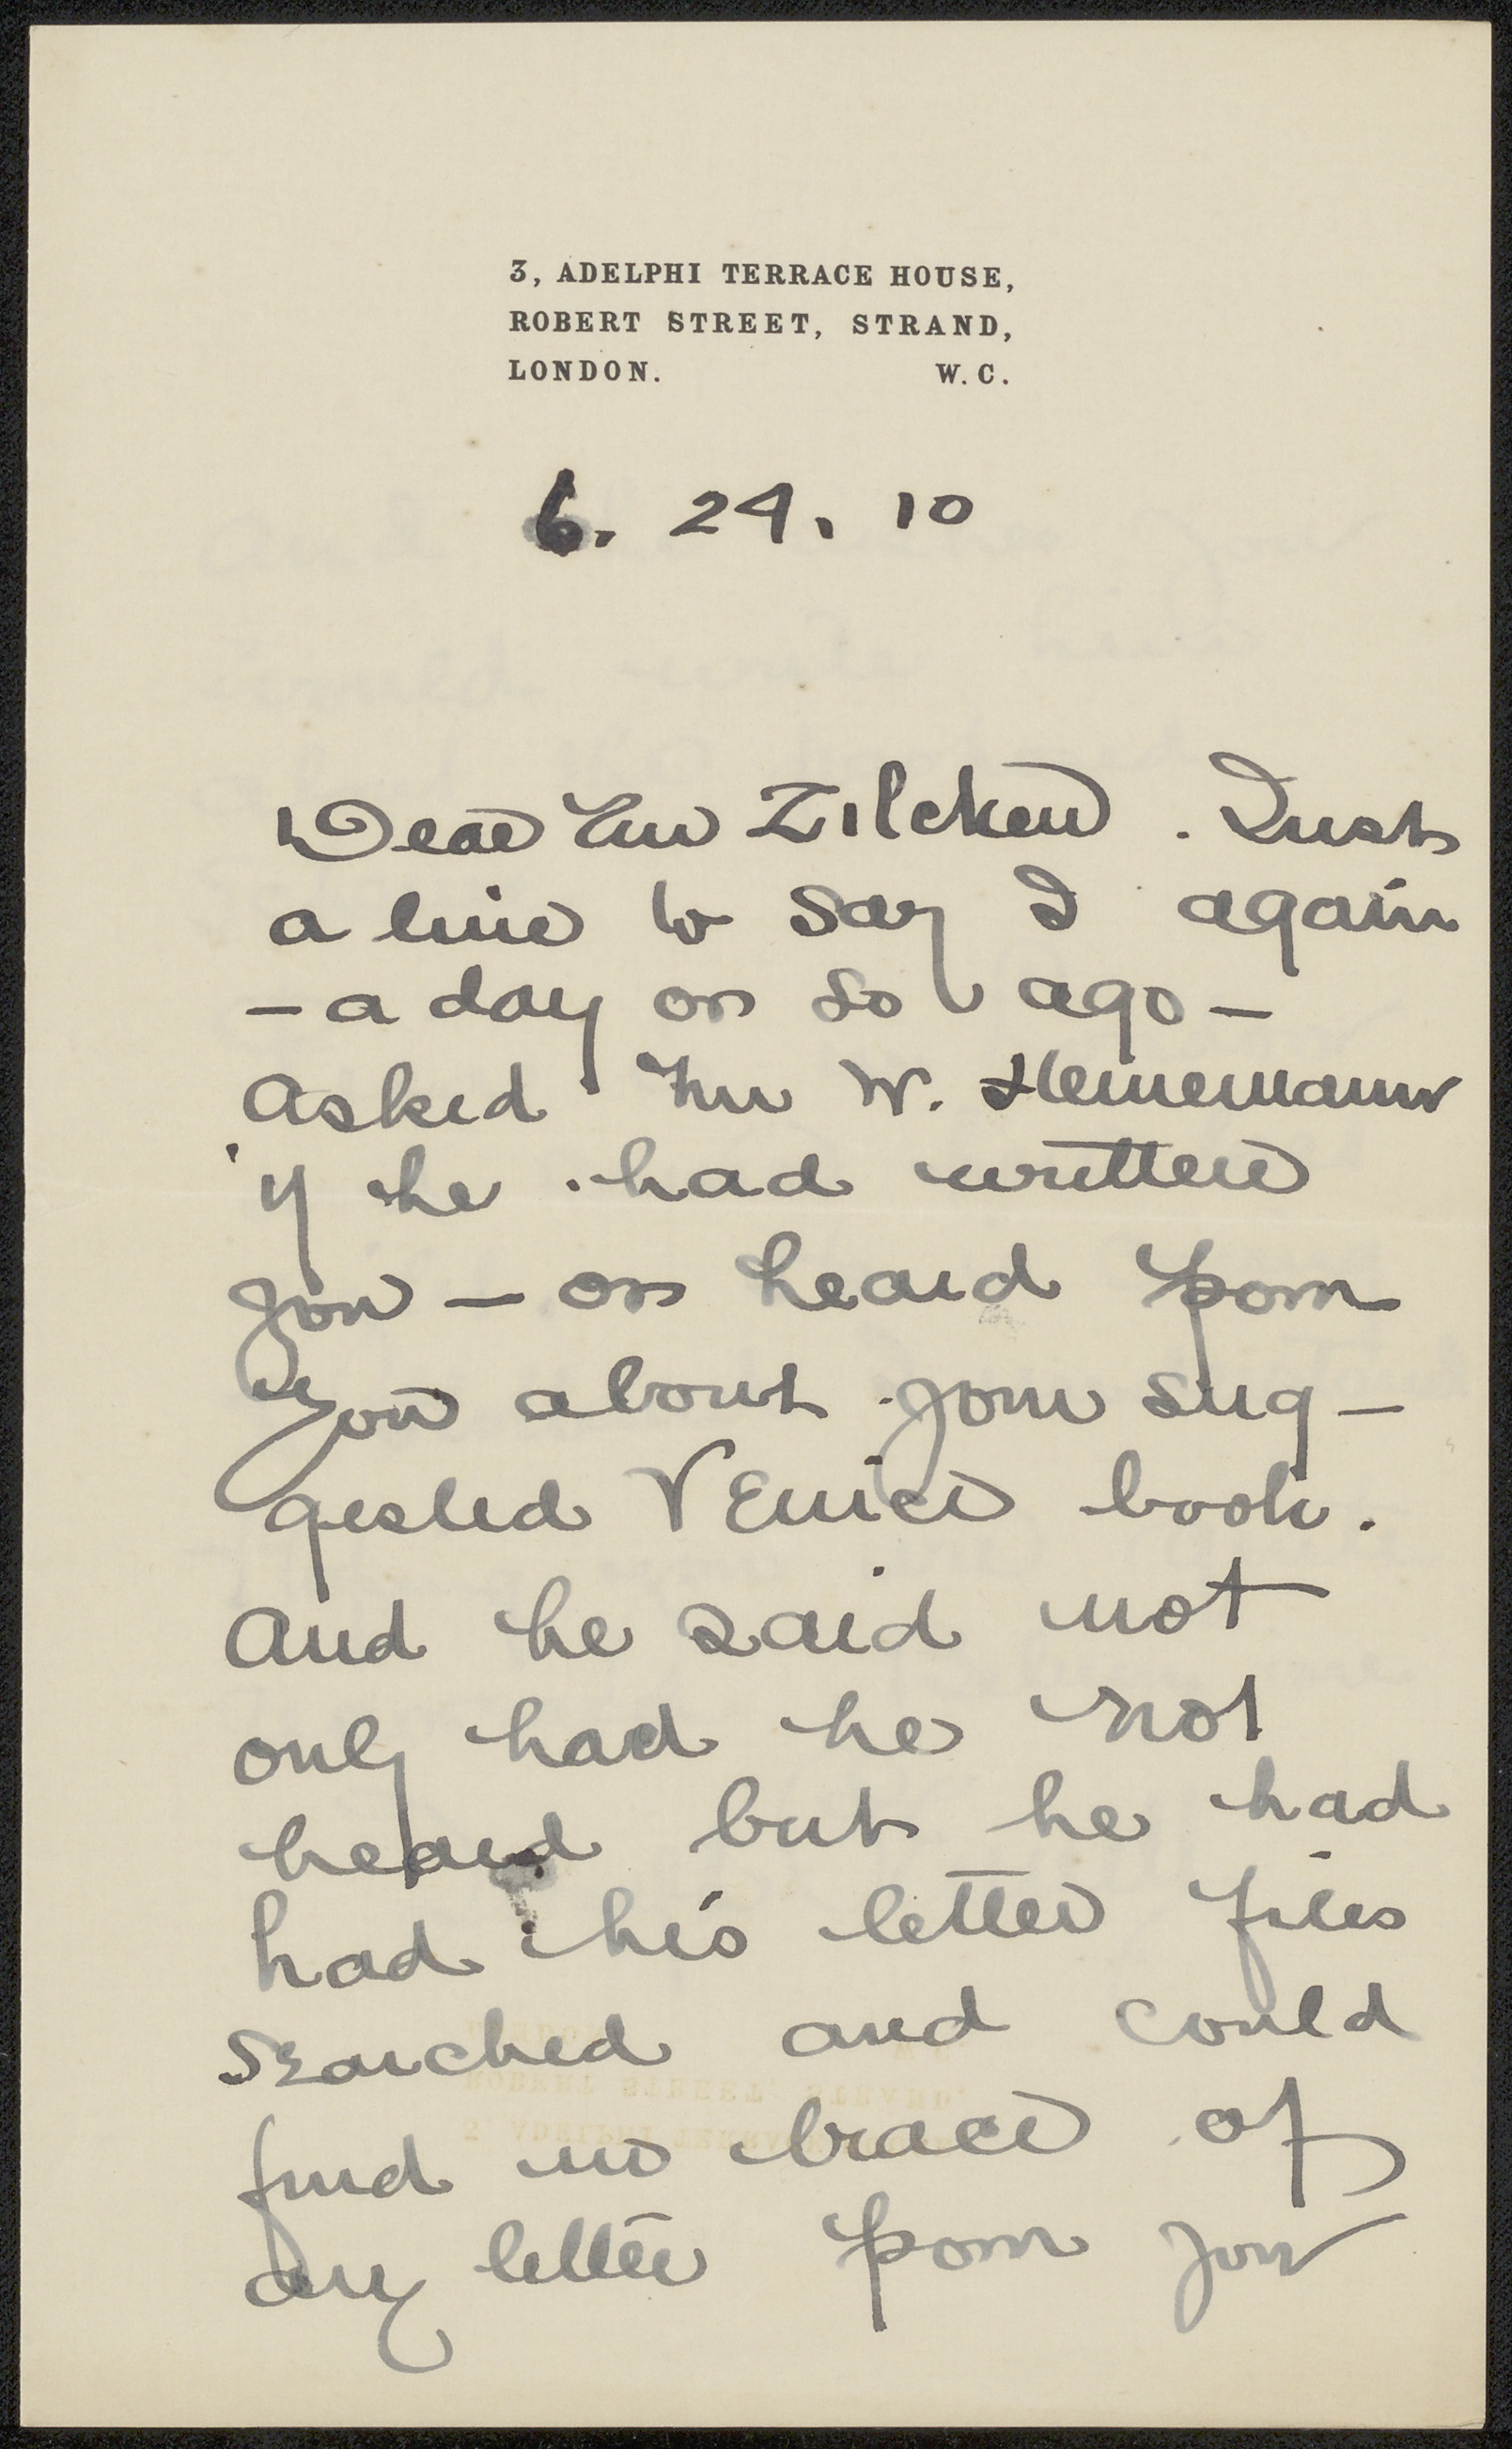 3, ADELPHI TERRACE HOUSE,
ROBERT STREET, STRAND,
LONDON. W.C.
6. 24. 10
Dear Mr Zilcken. Just
a line to say I again
– a day or so ago –
asked Mr W. Heinemann
if he had written
you – or heard from
you about your sug-
gested Venice book.
And he said not
only had he not
heard but he had
had his letter files
searched and could
find no trace of
any letter from you